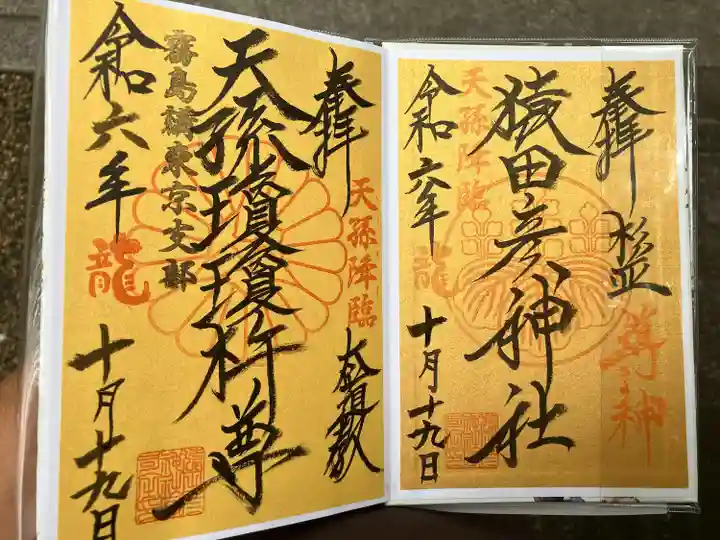 奉拝
猿田彦神社
天孫降臨
龍
令和六年
十月十九日
奉拝
天孫降臨
天孫瓊瓊杵尊
霧島講東京支部
令和六年
龍
十月十九日